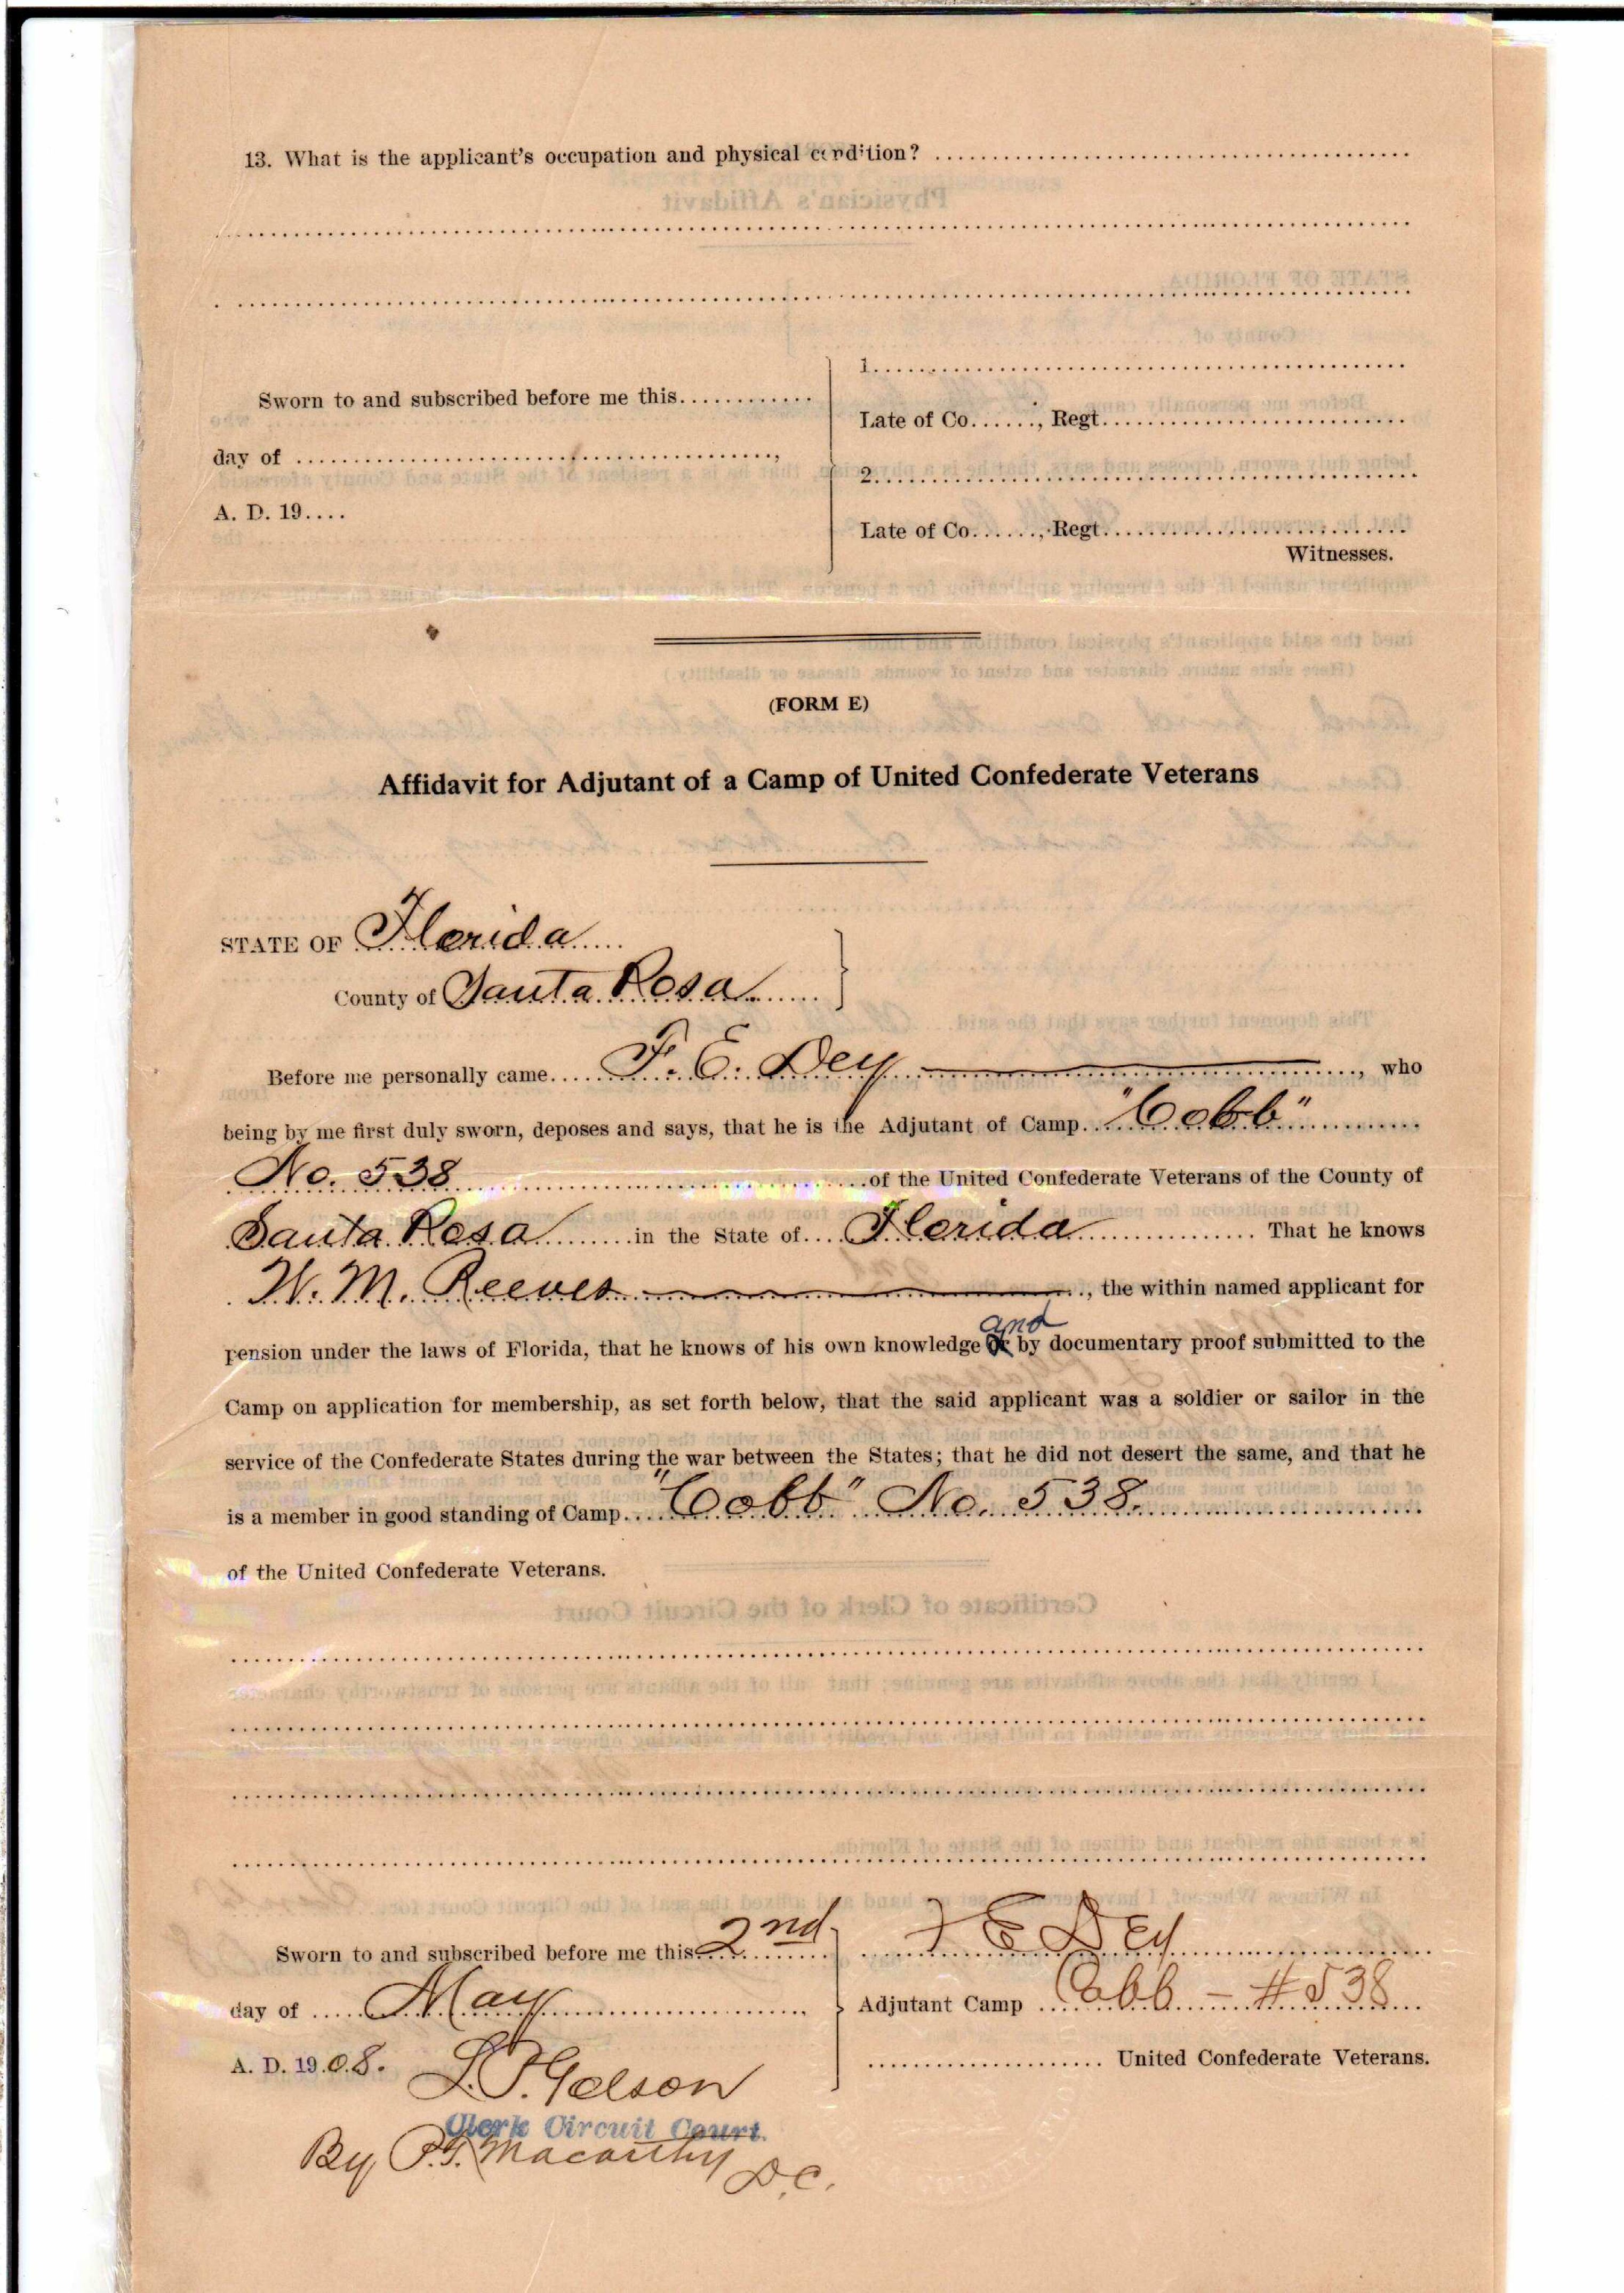 13. What is the applicant's occupation and physical condition? ........................................
........................................
........................................
Sworn to and subscribed before me this............
day of ........................................,
A. D. 19....
1........................................
Late of Co......, Regt........................
2........................................
Late of Co......, Regt........................
Witnesses.
(FORM E)
Affidavit for Adjutant of a Camp of United Confederate Veterans
STATE OF Florida
County of Santa Rosa
Before me personally came F. E. Dey, who
being by me first duly sworn, deposes and says, that he is the Adjutant of Camp "Cobb"
No. 538 of the United Confederate Veterans of the County of
Santa Rosa in the State of Florida That he knows
W. M. Reeves, the within named applicant for
and
pension under the laws of Florida, that he knows of his own knowledge or by documentary proof submitted to the
Camp on application for membership, as set forth below, that the said applicant was a soldier or sailor in the
service of the Confederate States during the war between the States; that he did not desert the same, and that he
is a member in good standing of Camp "Cobb" No. 538.
of the United Confederate Veterans.
Sworn to and subscribed before me this 2nd
day of May
A. D. 1908.
F E Dey
Adjutant Camp Cobb - # 538
United Confederate Veterans.
Clerk Circuit Court.
By P.G. Macarthy
D.C.